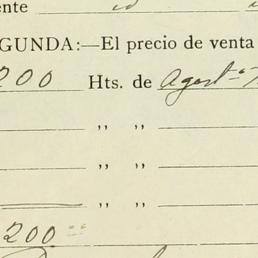 ente id
GUNDA:—El precio de venta
200 Hts. de Agost
,, ,,
,, ,,
,, ,,
200